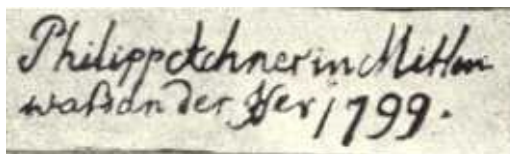 Philipp Achner in Mitten
waß an der Yser 1799.